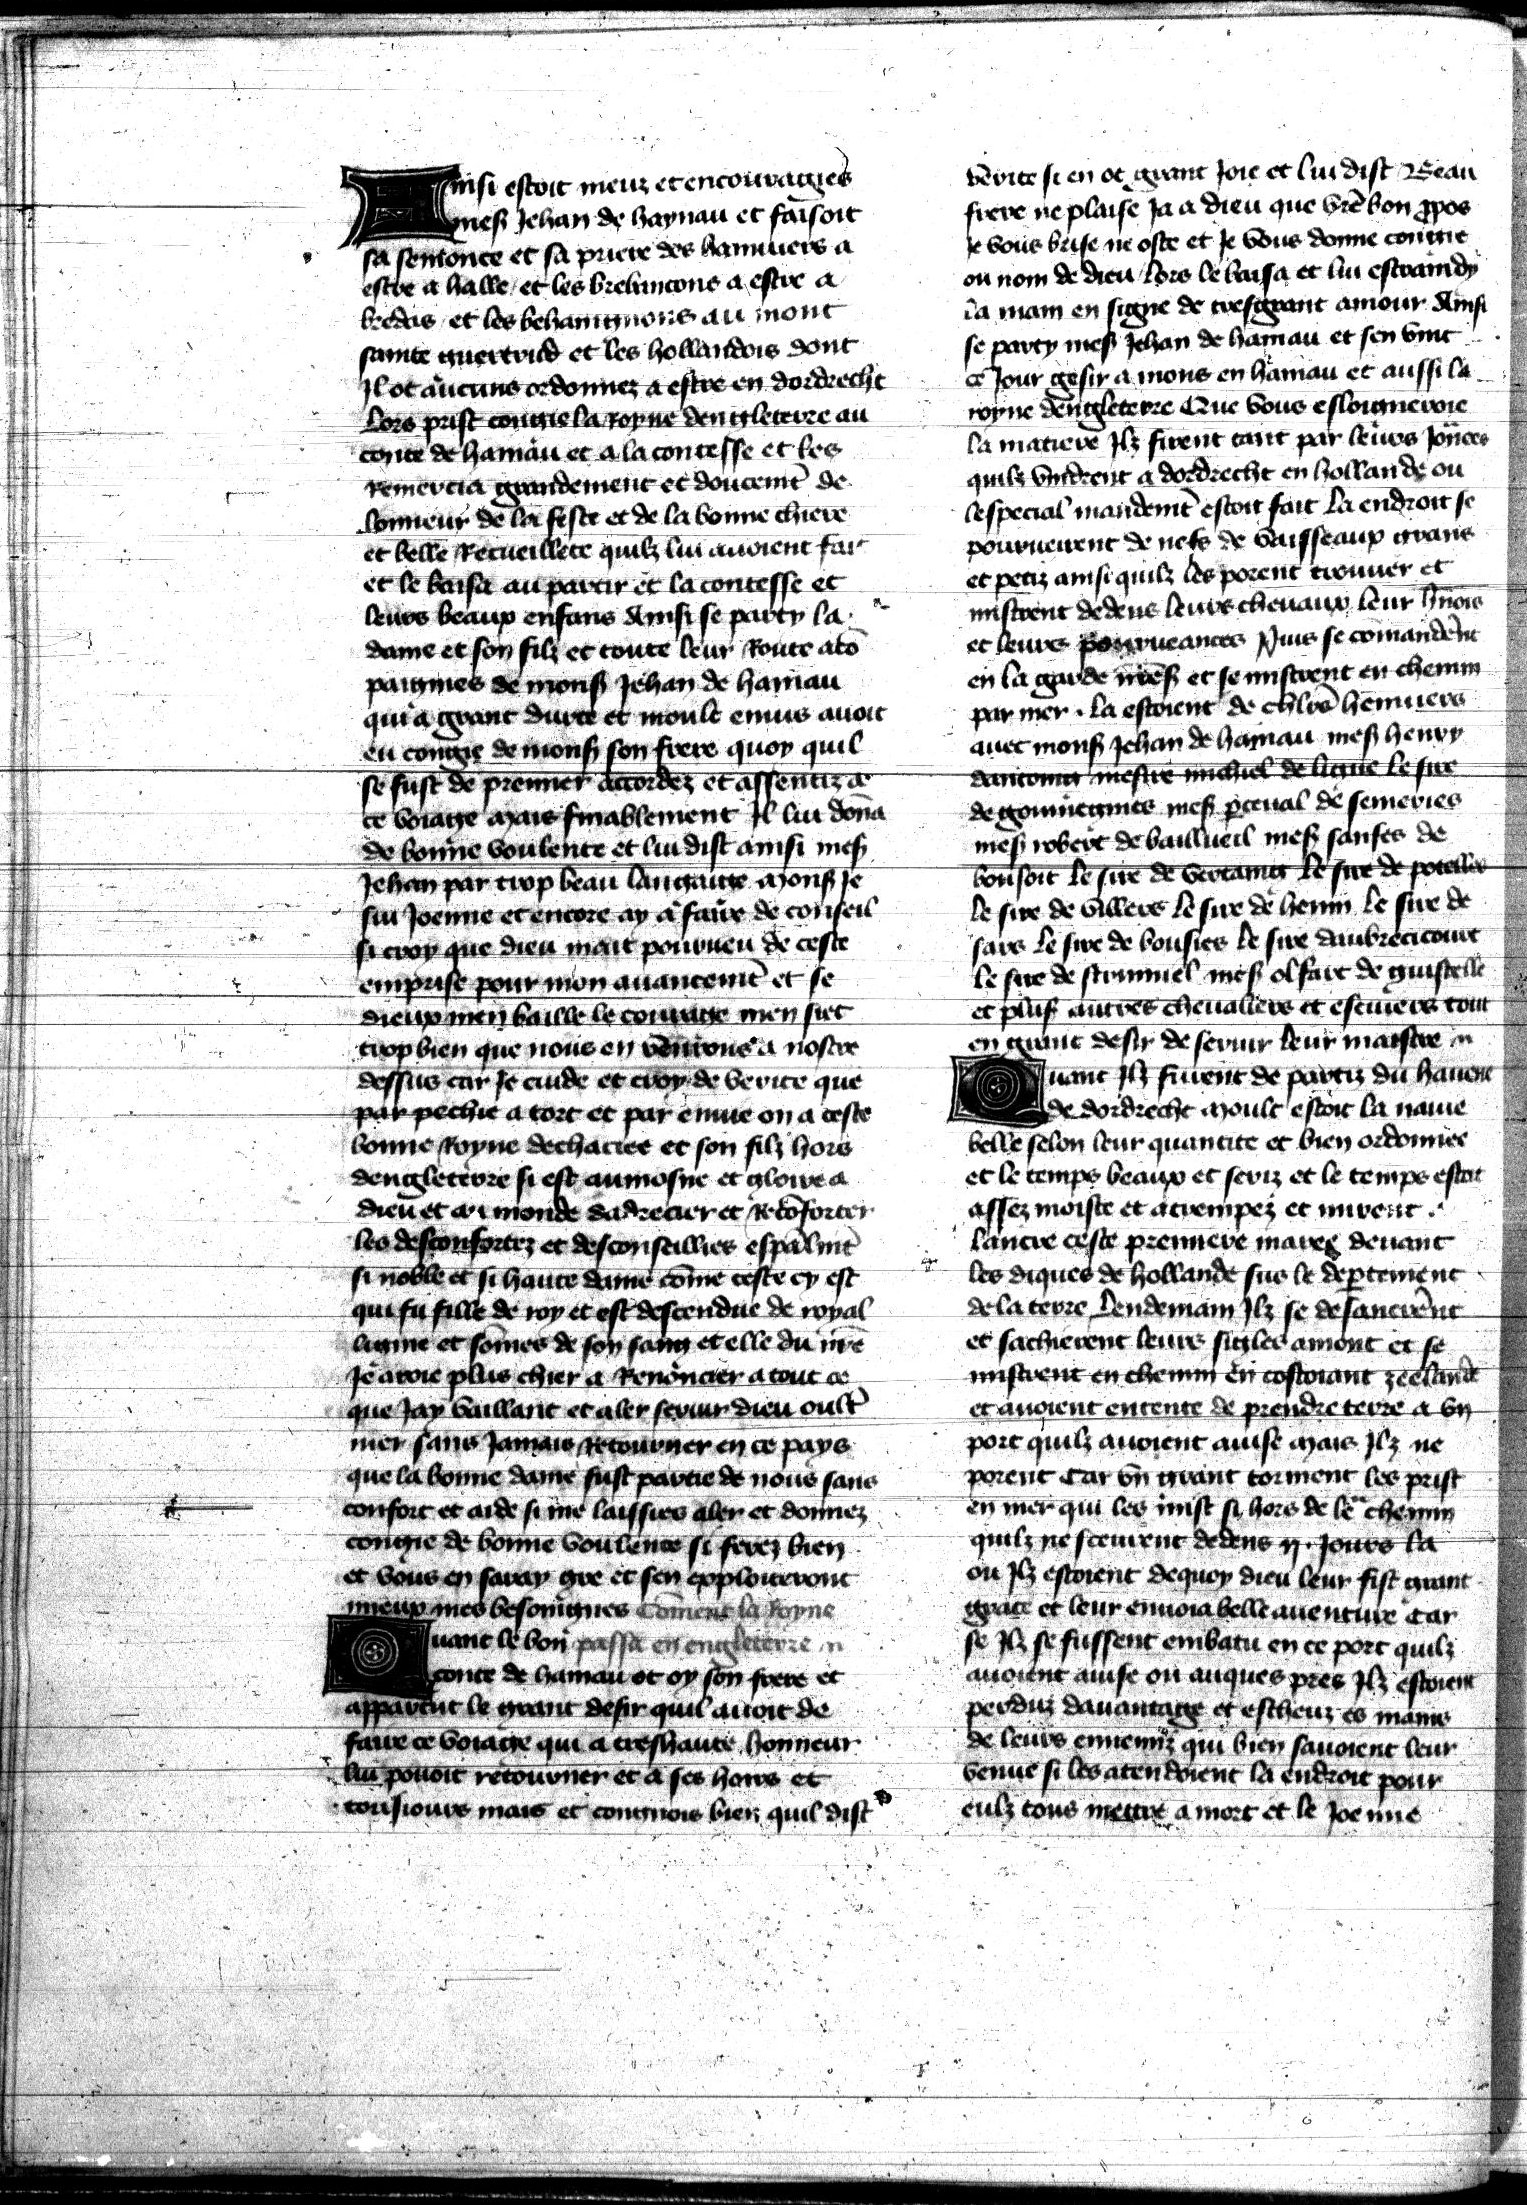 Ainsi estoit meuz et encouragies
mess Jehan de haynau et faisoit
sa semonce et sa priere des hannuiers a
estre a halle et les brebancons a estre a
bredas et les behaingnons au mont
sainte guertrud et les hollandois dont
Il ot aucuns ordonnez a estre en dordrecht
Lors prist congie la Royne dengleterre au
conte de hainau et a la contesse et les
Remercia grandement et doucemt de
lonneur de la feste et de la bonne chiere
et belle Recueillete quilz lui avoient fait
et le baisa au partir et la contesse et
leurs beaux enfans Ainsi se party la
dame et son filz et toute leur Route acō
paignies de monss Jehan de hainau
qui a grant durte et moult envis avoit
eu congie de monss son frere quoy quil
se fust de premier accordez et assentiz a
ce voiage Mais finablement Il lui dōna
de bonne voulente et lui dist ainsi mess
Jehan par trop beau langaige Monss Je
sui Joenne et encore ay a faire de conseil
si croy que dieu mait pourveu de ceste
emprise pour mon avancemt et se
dieux men baille le courage men siet
trop bien que nous en venrons a nostre
dessus car Je cuide et croy de verite que
par pechie a tort et par envie on a ceste
bonne Royne dechaciee et son filz hors
dengleterre si est aumosne et gloire a
dieu et au monde dadrecier et Recōforter
les desconfortez et desconseillies espālmt
si noble et si haute dame cōme ceste cy est
qui fu fille de roy et est descendue de royal
lignie et sōmes de son sang et elle du nrē
Je avoie plus chier a Renoncier a tout ce
que Jay vaillant et aler servir dieu oultr
mer sans Jamais Retourner en ce pays
que la bonne dame fust partie de nous sans
confort et aide si me laissies aler et donnez
congie de bonne voulente si ferez bien
et vous en saray gre et sen exploiteront
mieux mes besoingnes Cōment la Royne
Quant le bon passa en engleterre
conte de hainau ot oy son frere et
apparcut le grant desir quil avoit de
faire ce voiage qui a treshaute honneur
lui povoit retourner et a ses hoirs et
tousiours mais et congnois bien quil dist
vērite si en ot grant Joie et lui dist Beau
frere ne plaise Ja a dieu que vrē bon ppos
Je vous brise ne oste et Je vous donne congie
ou nom de dieu Lors le baisa et lui estraindy
la main en signe de tresgrant amour Ainsi
se party mess Jehan de hainau et sen vint
ce Jour gesir a mons en hainau et aussi la
royne dengleterre Que vous eslongneroie
la matiere Ilz firent tant par leurs Jōnees
quilz vindrent a dordrecht en hollande ou
lespecial mandemt estoit fait La endroit se
pourveirent de nefs de vaisseaux grans
et petiz ainsi quilz les porent trouver et
mistrent dedens leurs chevaux leur hnois
et leurs pourveances Puis se cōmandērt
en la garde nrēss et se mistrent en chemin
par mer . La estoient de chlrs hennuiers
avec monss Jehan de hainau mess henry
dantoing messire michiel de ligne le sire
de gommegnies mess pceval de semeries
mess robert de bailluel mess sanses de
bousoit Le sire de vertaing Le sire de potelles
le sire de villers Le sire de henin Le sire de
sars Le sire de bousies Le sire daubrecicourt
Le sire de strumuel mess olfart de guistelle
et plus autres chevaliers et escuiers tout
en grant desir de servir leur maistre
Quant Ilz furent de partiz du havene
de dordrecht Moult estoit la navie
belle selon leur quantite et bien ordonnee
et le temps beaux et seriz et le temps estoit
assez moiste et atrempez et mirent .
lancre ceste premiere maree devant
les diques de hollande sus le deptement
de la terre Lendemain Ilz se desancrērt
et sachierent leurs sigles amont et se
mistrent en chemin en costoiant zeelande
et avoient entente de prendre terre a vn
port quilz avoient avise Mais Ilz ne
porent Car vn grant torment les prist
en mer qui les mist si hors de leur chemin
quilz ne sceurent dedens ij. Jours la
ou Ilz estoient dequoy dieu leur fist grant
grace et leur envoia belle aventure Car
se Ilz se fussent embatu en ce port quilz
avoient avise ou auques pres Ilz estoient
perduz davantaige et escheuz es mains
de leurs ennemiz qui bien savoient leur
venue si les atendoient la endroit pour
eulz tous mettre a mort et le Joenne